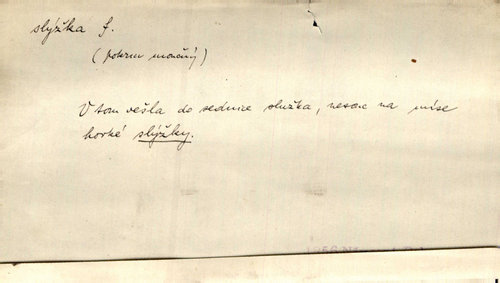 slýžka f.
(pokrm moučný)
V tom vešla do sednice služka, nesouc na míse
horké slýžky.